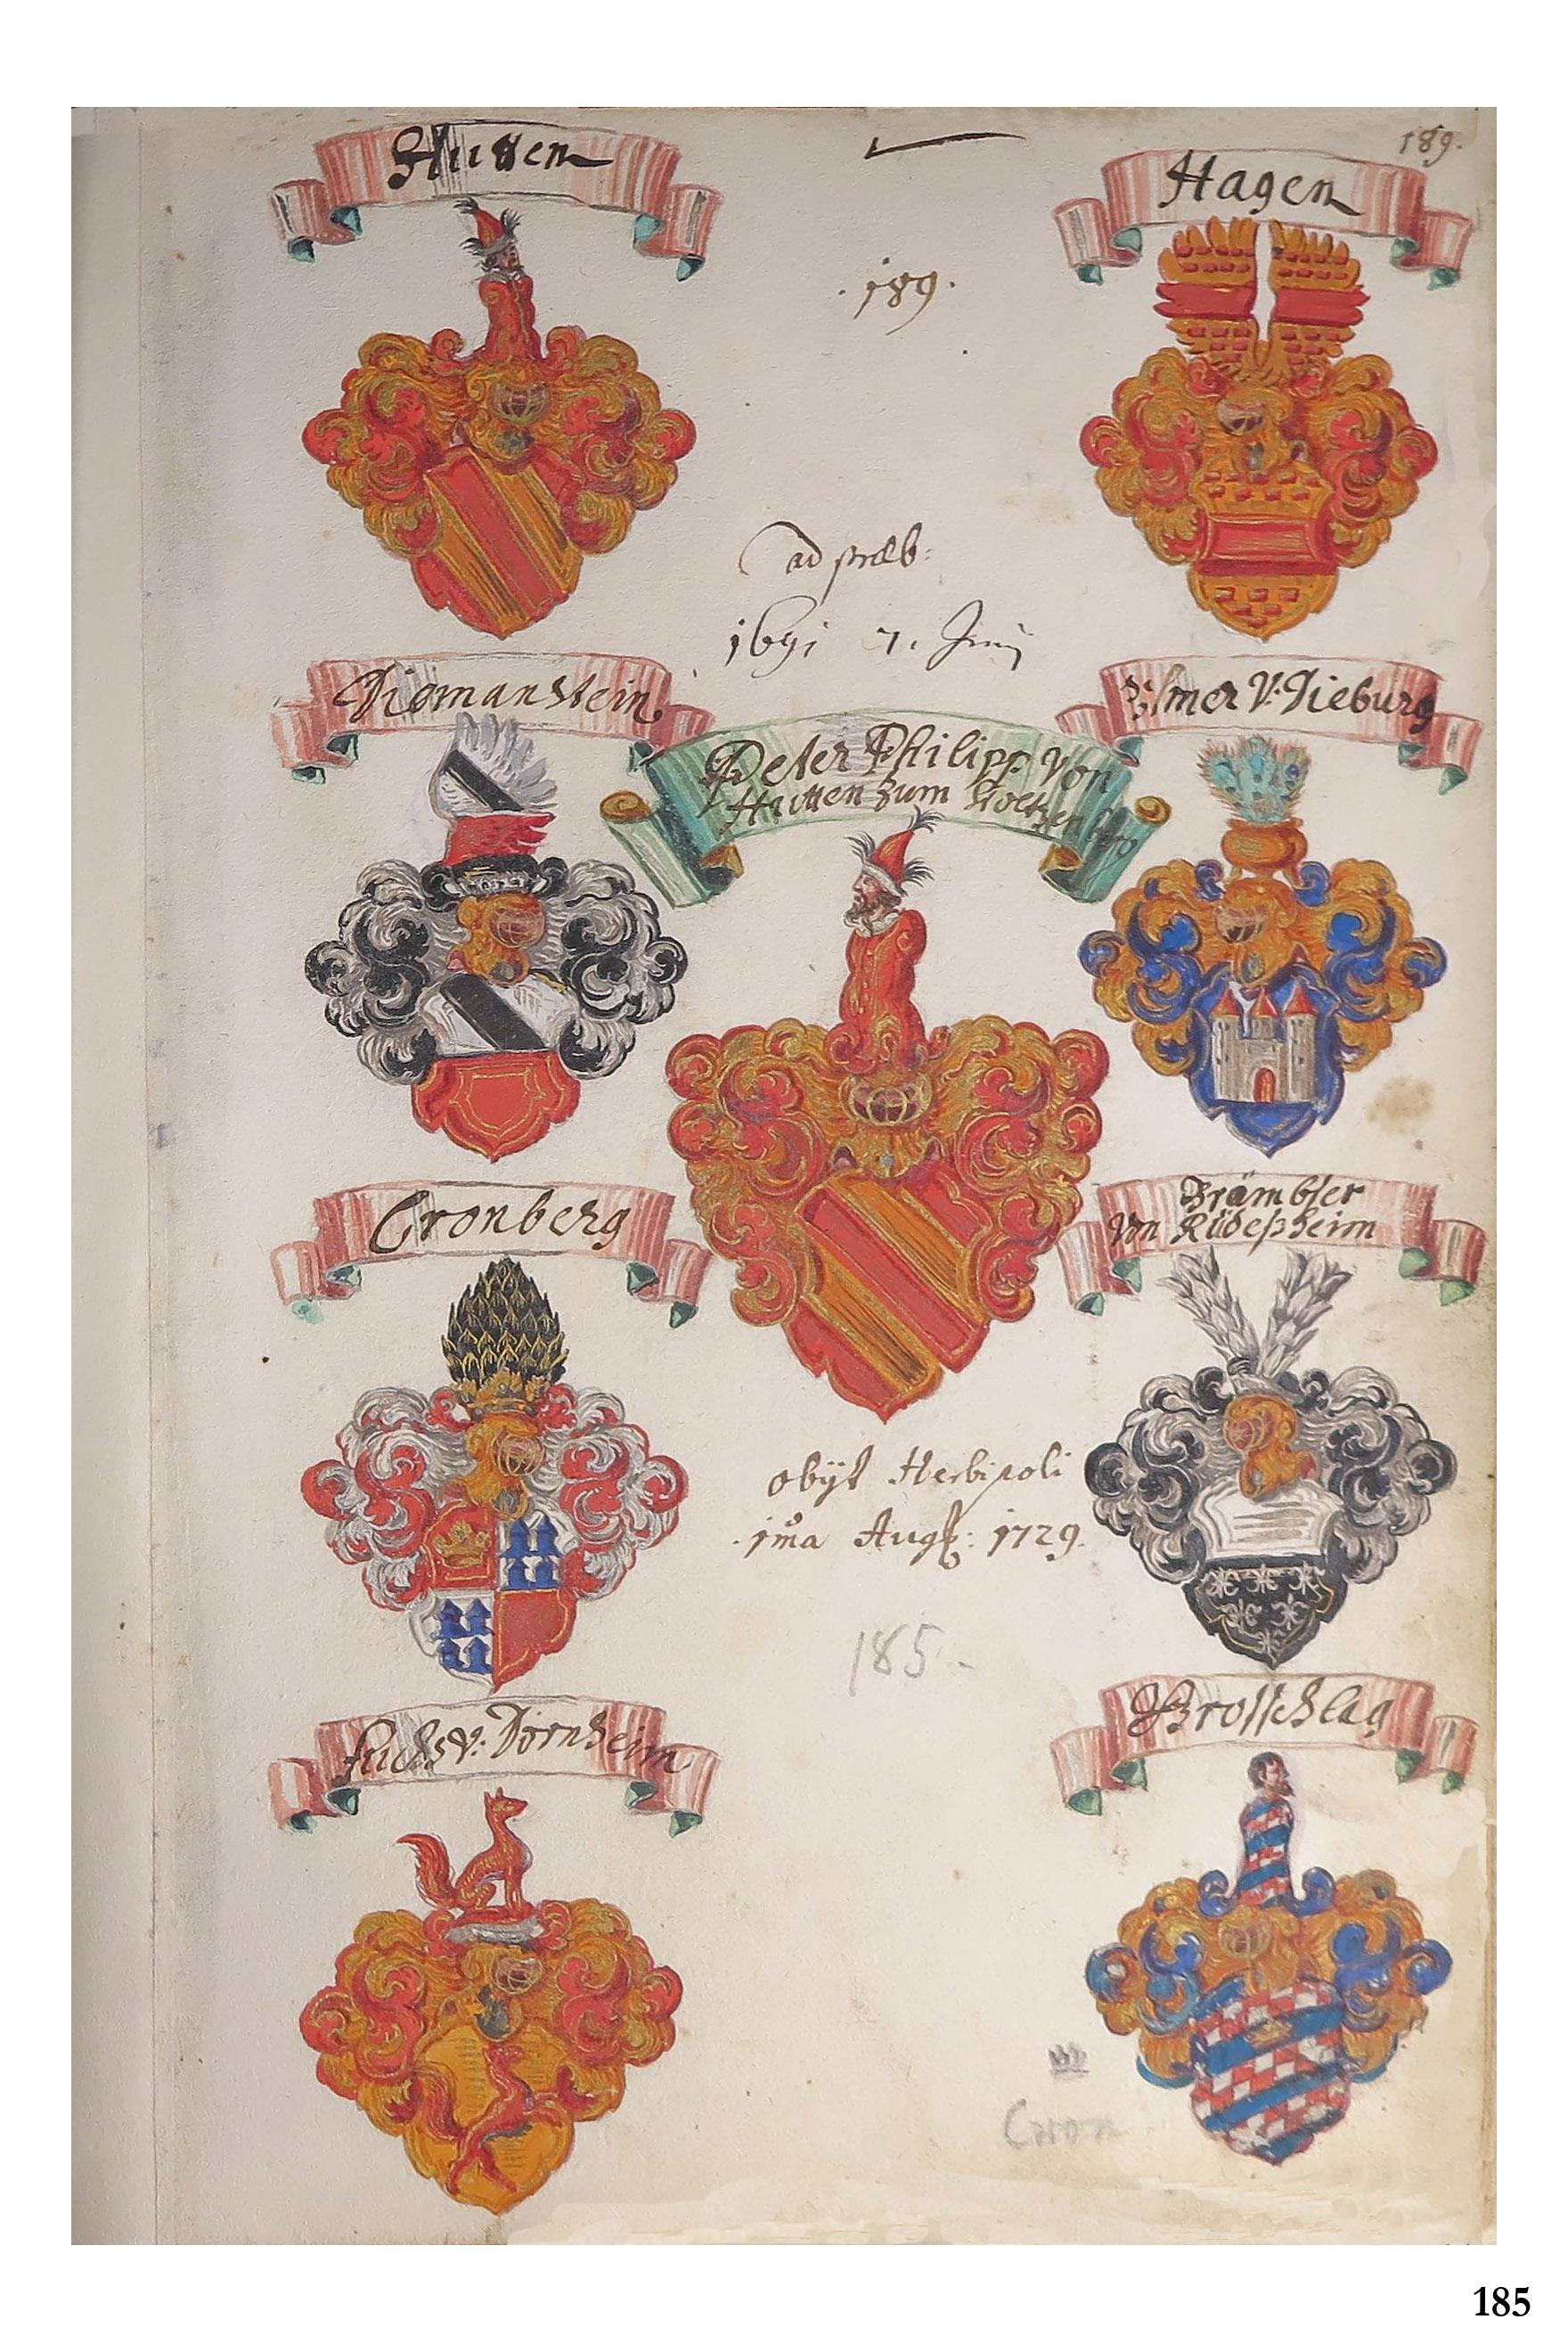 Hutten
189.
Hagen
.189.
ad præb:
1691 7. Junij
Diemanstein.
Ulmer V: Dieburg
Peter Philipp Von
Hutten zum Stoltzenberg
Cronberg
Brämbser
Von Rüdeßheim
obijt Herbipoli
.1ma Augst: 1729.
185.-
Fuchs v: Dornheim
Groschlag
Cron
185